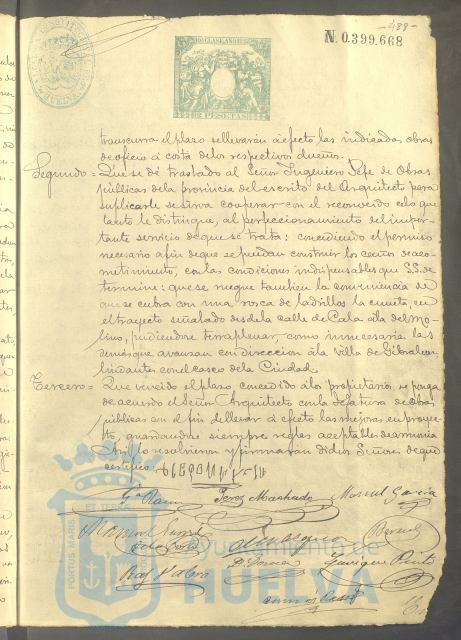 -488-
N. 0.399.668
10ª CLASE AÑO 18
2 PESETAS
transcurra el plazo se llevarán á efecto las indicadas obras
de oficio á costa de los respectivos dueños.
Segundo = Que se dé traslado al Señor Ingeniero Gefe de Obras
públicas de la provincia del escrito del Arquitecto para
suplicarle se sirva cooperar con el reconocido celo que
tanto le distingue, al perfeccionamiento del impor-
tante servicio de que se trata: concediendo el permiso
necesario á fin de que se puedan construir los caños de aco-
metimiento, con las condiciones indispensables que S.S. de-
termine: que se niegue tambien la conveniencia de
que se cubra con una rosca de ladrillos la cuneta, en
el trayecto señalado desde la calle de Cala á la del Mo-
lino, pudiendose terraplenar, como innecesaria las
demás que avanzan con direccion á la villa de Gibraleon,
lindantes con el casco de la Ciudad.
Tercero = Que vencido el plazo, concedido á los propietarios, se ponga
de acuerdo el Señor Arquitecto con la Gefatura de Obras
públicas con el fin de llevar á efecto las mejoras en proyec-
to, guardandose siempre reglas aceptables de armonía
Así lo resolvieron y firmaran dichos Señores de que
certifico =
Gª Ramos Perez Machado Manuel Garcia
Manuel
Enrique Pinto
PORTUS MARIS
Ayuntamiento de
HUELVA